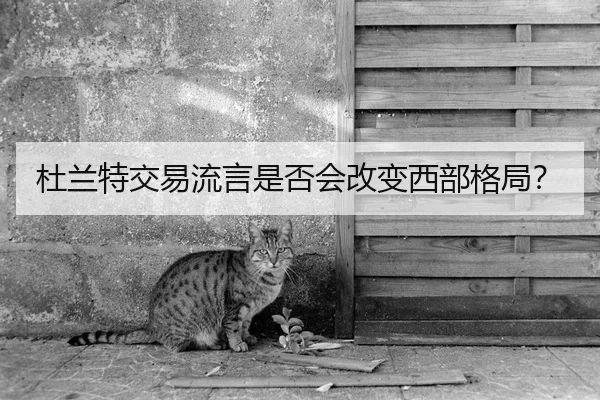 杜兰特交易流言是否会改变西部格局？